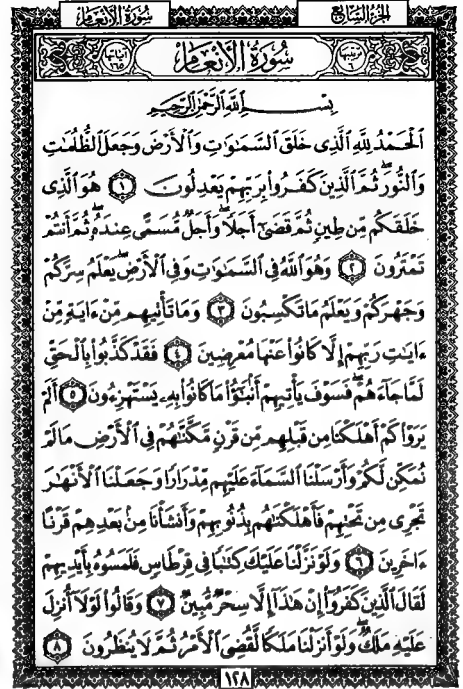 سُورَةُ الأَنْعَامِ
الجُزءُ السَّابِعُ
سُورَةُ الأَنْعَامِ
آيَاتُهَا ١٦٥
بِسْمِ اللَّهِ الرَّحْمَٰنِ الرَّحِيمِ
الْحَمْدُ لِلَّهِ الَّذِي خَلَقَ السَّمَٰوَٰتِ وَالْأَرْضَ وَجَعَلَ الظُّلُمَٰتِ
وَالنُّورَ ۖ ثُمَّ الَّذِينَ كَفَرُوا بِرَبِّهِمْ يَعْدِلُونَ ١ هُوَ الَّذِي
خَلَقَكُم مِّن طِينٍ ثُمَّ قَضَىٰٓ أَجَلًا ۖ وَأَجَلٌ مُّسَمًّى عِندَهُۥ ۖ ثُمَّ أَنتُمْ
تَمْتَرُونَ ٢ وَهُوَ اللَّهُ فِي السَّمَٰوَٰتِ وَفِي الْأَرْضِ ۖ يَعْلَمُ سِرَّكُمْ
وَجَهْرَكُمْ وَيَعْلَمُ مَا تَكْسِبُونَ ٣ وَمَا تَأْتِيهِم مِّنْ ءَايَةٍ مِّنْ
ءَايَٰتِ رَبِّهِمْ إِلَّا كَانُوا عَنْهَا مُعْرِضِينَ ٤ فَقَدْ كَذَّبُوا بِالْحَقِّ
لَمَّا جَآءَهُمْ ۖ فَسَوْفَ يَأْتِيهِمْ أَنۢبَٰٓؤُا مَا كَانُوا بِهِۦ يَسْتَهْزِءُونَ ٥ أَلَمْ
يَرَوْا كَمْ أَهْلَكْنَا مِن قَبْلِهِم مِّن قَرْنٍ مَّكَّنَّٰهُمْ فِي الْأَرْضِ مَا لَمْ
نُمَكِّن لَّكُمْ وَأَرْسَلْنَا السَّمَآءَ عَلَيْهِم مِّدْرَارًا وَجَعَلْنَا الْأَنْهَٰرَ
تَجْرِي مِن تَحْتِهِمْ فَأَهْلَكْنَٰهُم بِذُنُوبِهِمْ وَأَنشَأْنَا مِنۢ بَعْدِهِمْ قَرْنًا
ءَاخَرِينَ ٦ وَلَوْ نَزَّلْنَا عَلَيْكَ كِتَٰبًا فِي قِرْطَاسٍ فَلَمَسُوهُ بِأَيْدِيهِمْ
لَقَالَ الَّذِينَ كَفَرُوٓا إِنْ هَٰذَآ إِلَّا سِحْرٌ مُّبِينٌ ٧ وَقَالُوا لَوْلَآ أُنزِلَ
عَلَيْهِ مَلَكٌ ۖ وَلَوْ أَنزَلْنَا مَلَكًا لَّقُضِيَ الْأَمْرُ ثُمَّ لَا يُنظَرُونَ ٨
١٢٨